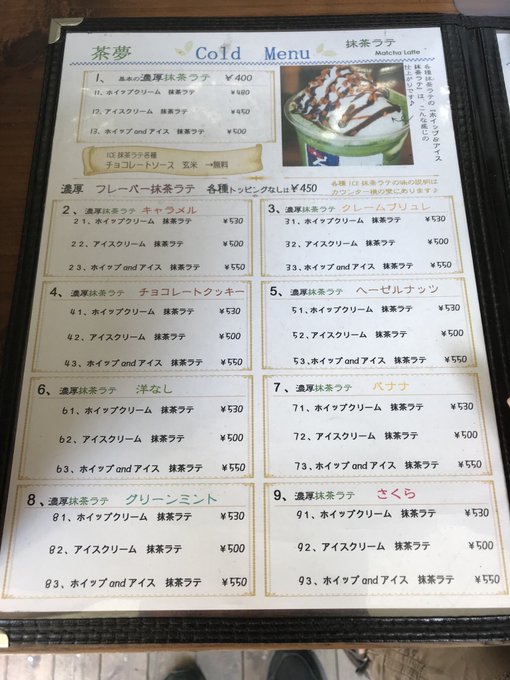 茶夢 Cold Menu 抹茶ラテ
Matcha Latte
1、 基本の濃厚抹茶ラテ ¥400
11、ホイップクリーム 抹茶ラテ ¥480
12、アイスクリーム 抹茶ラテ ¥450
13、ホイップ and アイス 抹茶ラテ ¥500
各種抹茶ラテの『ホイップ&アイス
抹茶ラテ』は、こんな感じの
仕上がりです♪
ICE 抹茶ラテ各種
チョコレートソース 玄米 →無料
濃厚 フレーバー抹茶ラテ 各種トッピングなしは¥450
各種 ICE 抹茶ラテの味の説明は
カウンター横の壁にあります♪
2、濃厚抹茶ラテ キャラメル
21、ホイップクリーム 抹茶ラテ ¥530
22、アイスクリーム 抹茶ラテ ¥500
23、ホイップ and アイス 抹茶ラテ ¥550
3、濃厚抹茶ラテ クレームブリュレ
31、ホイップクリーム 抹茶ラテ ¥530
32、アイスクリーム 抹茶ラテ ¥500
33、ホイップ and アイス 抹茶ラテ ¥550
4、濃厚抹茶ラテ チョコレートクッキー
41、ホイップクリーム 抹茶ラテ ¥530
42、アイスクリーム 抹茶ラテ ¥500
43、ホイップ and アイス 抹茶ラテ ¥550
5、濃厚抹茶ラテ ヘーゼルナッツ
51、ホイップクリーム 抹茶ラテ ¥530
52、アイスクリーム 抹茶ラテ ¥500
53、ホイップ and アイス 抹茶ラテ ¥550
6、濃厚抹茶ラテ 洋なし
61、ホイップクリーム 抹茶ラテ ¥530
62、アイスクリーム 抹茶ラテ ¥500
63、ホイップ and アイス 抹茶ラテ ¥550
7、濃厚抹茶ラテ バナナ
71、ホイップクリーム 抹茶ラテ ¥530
72、アイスクリーム 抹茶ラテ ¥500
73、ホイップ and アイス 抹茶ラテ ¥550
8、濃厚抹茶ラテ グリーンミント
81、ホイップクリーム 抹茶ラテ ¥530
82、アイスクリーム 抹茶ラテ ¥500
83、ホイップ and アイス 抹茶ラテ ¥550
9、濃厚抹茶ラテ さくら
91、ホイップクリーム 抹茶ラテ ¥530
92、アイスクリーム 抹茶ラテ ¥500
93、ホイップ and アイス 抹茶ラテ ¥550